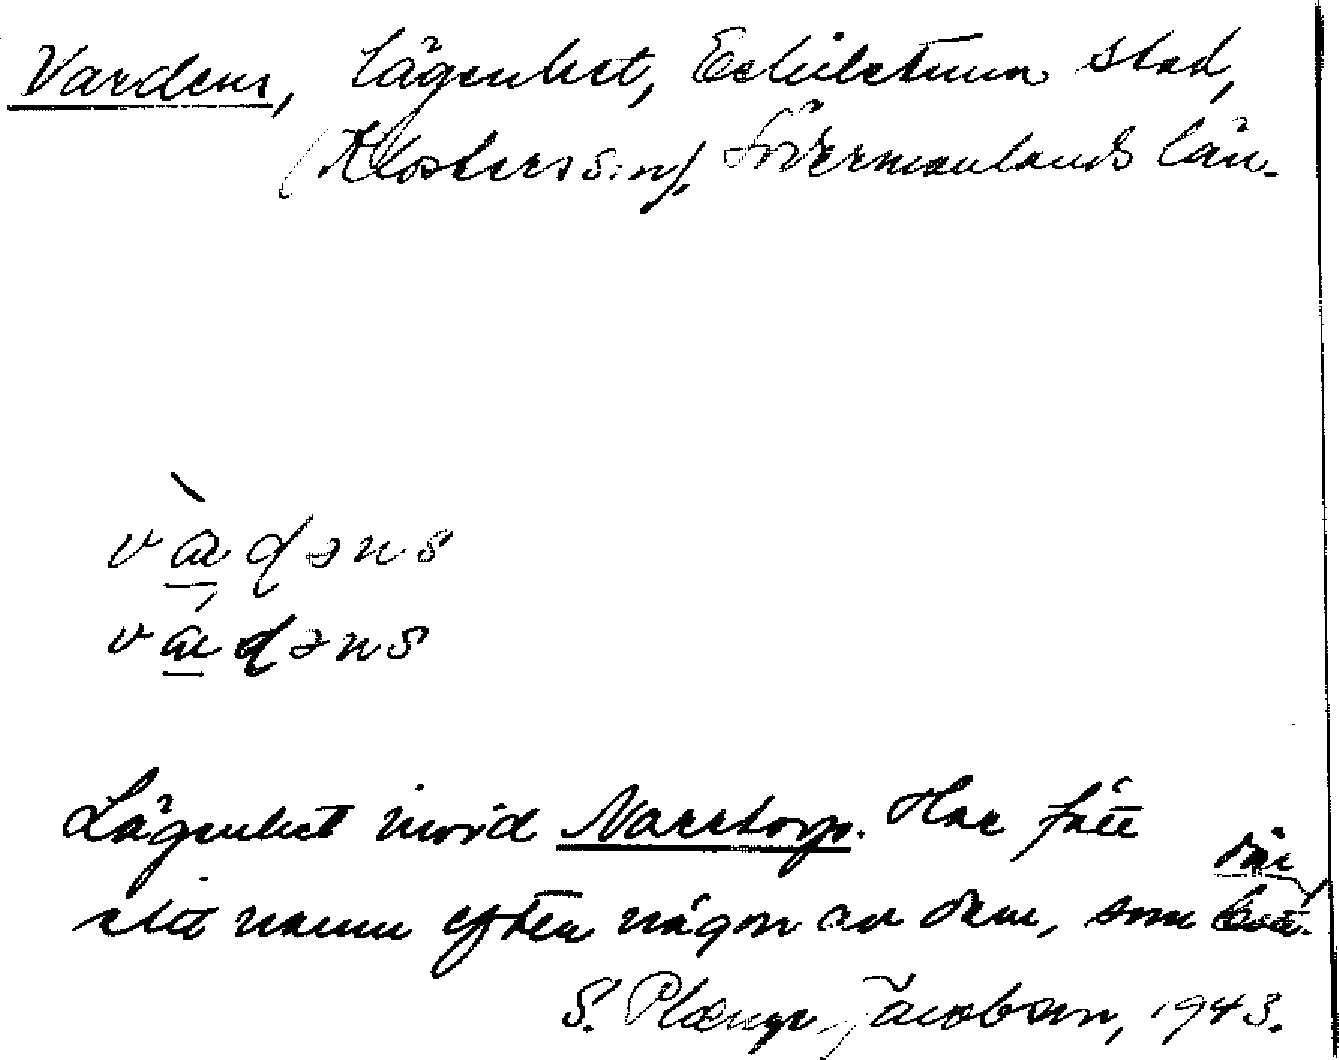 Vardens, Lägenhet, Eskilstuna stad,
(Klosters sn), Södermanlands län.
vɑ̀ḍəns
vɑ́ḍəns
Lägenhet invid Narrtorp. Har fått
sitt namn efter någon av dem, som där bott.
S. Plænge Jacobson, 1943.